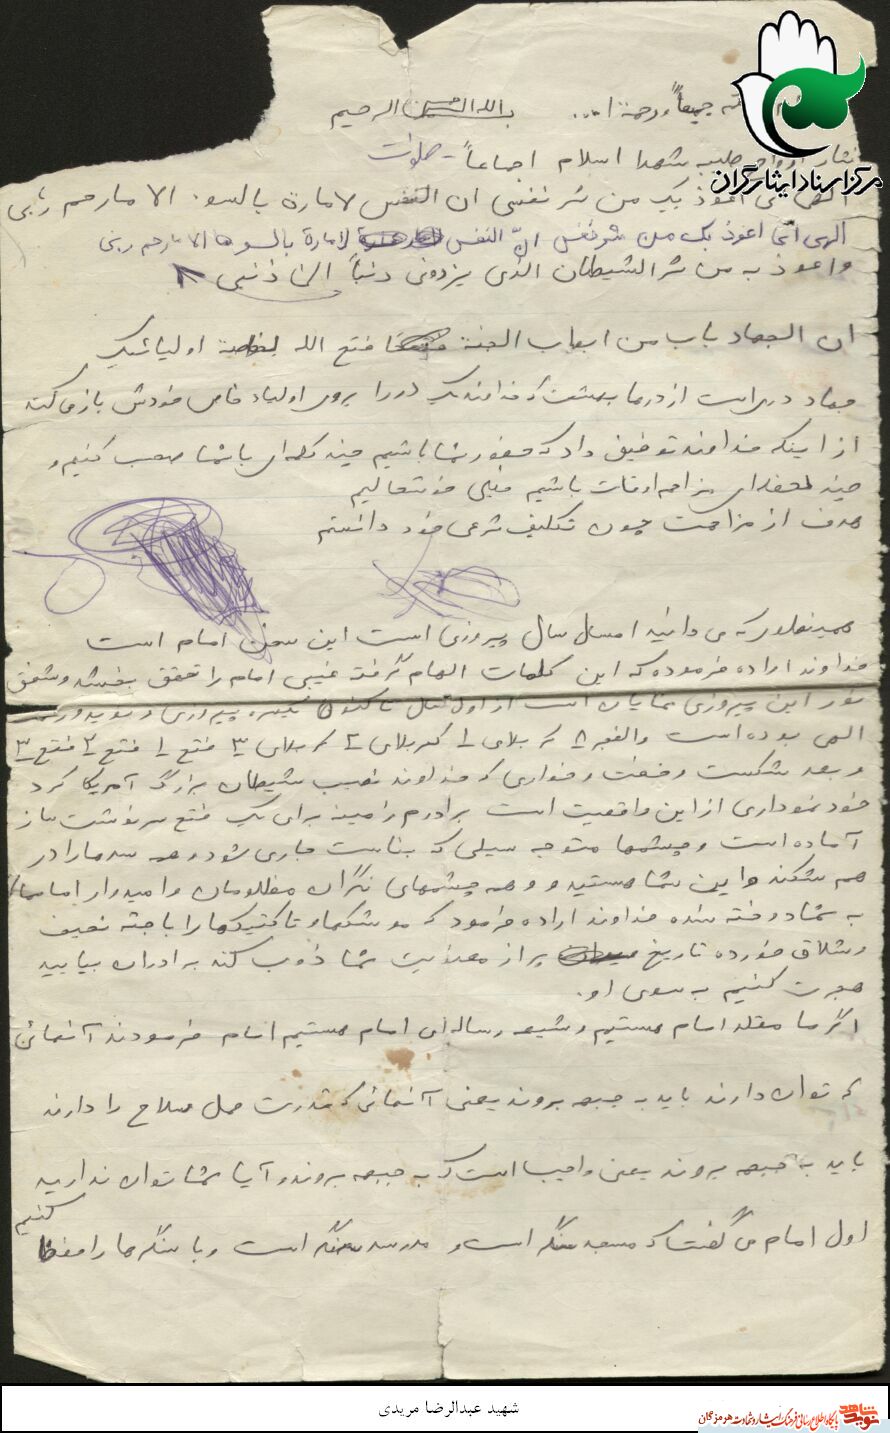 بسم الله الرحمن الرحیم
جمیعاً و رحمة ا...
مرکز اسناد ایثارگران
نثار ارواح طیبه شهدا اسلام اجماعاً - صلوات
الهی انی اعوذ بک من شر نفسی ان النفس لامارة بالسوء الا ما رحم ربی
الهی انی اعوذ بک من شر نفسی انّ النفس لامارة بالسوء الا ما رحم ربی
و اعوذ به من شر الشیطان الذی یزدونی ذنباً الی ذنبی
ان الجهاد باب من ابواب الجنة فتح الله لخاصة اولیائه
جهاد دری است از درهای بهشت که خداوند یک در را بروی اولیاء خاص خودش باز می کند
از اینکه خداوند توفیق داد که حضور شما باشیم چند کلمه ای با شما صحبت کنیم و
چند لحظه ای مزاحم اوقات باشیم خیلی خوشحالیم
هدف از مزاحمت چون تکلیف شرعی خود دانستم
همینطور که می دانید امسال سال پیروزی است این سخن امام است
خداوند اراده فرموده که این کلمات الهام گرفته غیبی امام را تحقق بخشد و شفق
نور این پیروزی نمایان است از اول سال تا کنون پیروزی و
الهی بوده است والفجر ۸ کربلای ۱ کربلای ۲ کربلای ۳ فتح ۱ فتح ۲ فتح ۳
و بعد شکست و خفت و خواری که خداوند نصیب شیطان بزرگ آمریکا کرد
خود نموداری از این واقعیت است برادرم زمینه برای یک فتح سرنوشت ساز
آماده است و چشمها متوجه سیلی که بناست جاری شود و همه سدها را در
هم شکند و این شما هستید و همه چشمهای نگران مظلومان و امیدوار امام ما
به شما دوخته شده خداوند اراده فرمود که موشکها و تاکتیکها را با جثه نحیف
و شلاق خورده تاریخ پر از معنویت شما ذوب کند برادران بیایید
هجرت کنیم به سوی او.
اگر ما مقلد امام هستیم و شیعه رساله ای امام هستیم امام فرمودند آنهائی
که توان دارند باید به جبهه بروند یعنی آنهائی که قدرت حمل سلاح را دارند
باید به جبهه بروند یعنی واجب است که به جبهه بروند و آیا شما توان ندارید
اول امام می گفت که مسجد سنگر است و مدرسه سنگر است و با سنگرها را حفظ کنیم
شهید عبدالرضا مریدی
نوید شاهد
پایگاه اطلاع رسانی فرهنگ ایثار و شهادت هرمزگان